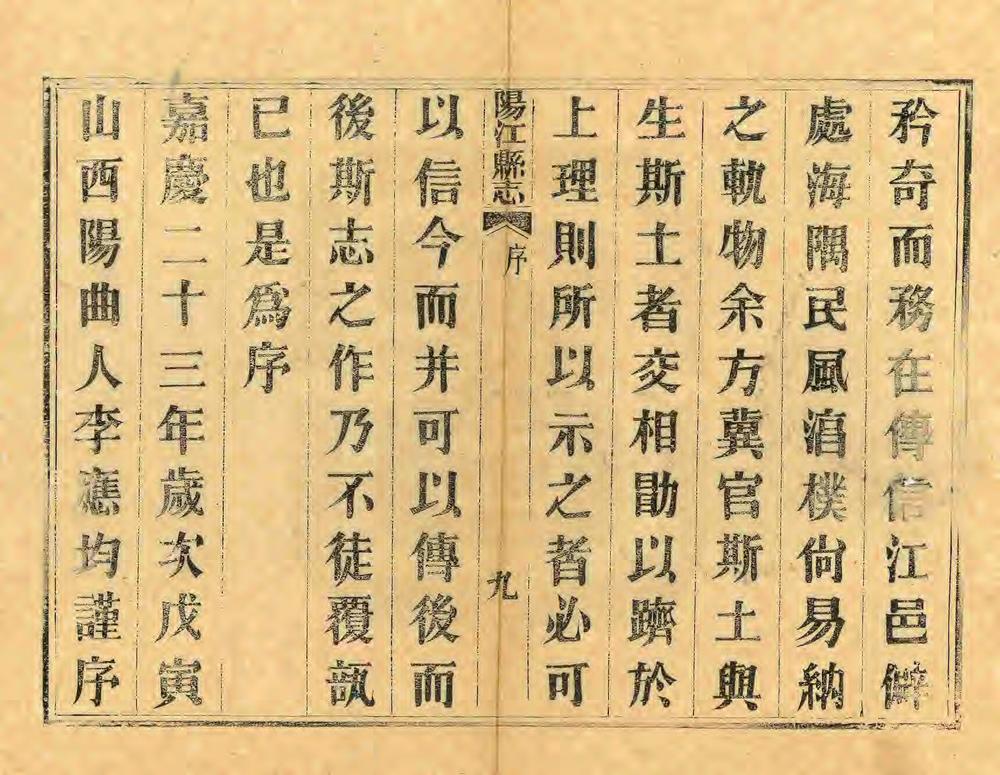 矜奇而務在傳信江邑僻
處海隅民風滀樸尙易納
之軌物余方冀官斯土與
生斯土者交相勖以躋於
上理則所以示之者必可
陽江縣志 序 九
以信今而并可以傳後而
後斯志之作乃不徒覆瓿
已也是爲序
嘉慶二十三年歲次戊寅
山西陽曲人李澐均謹序